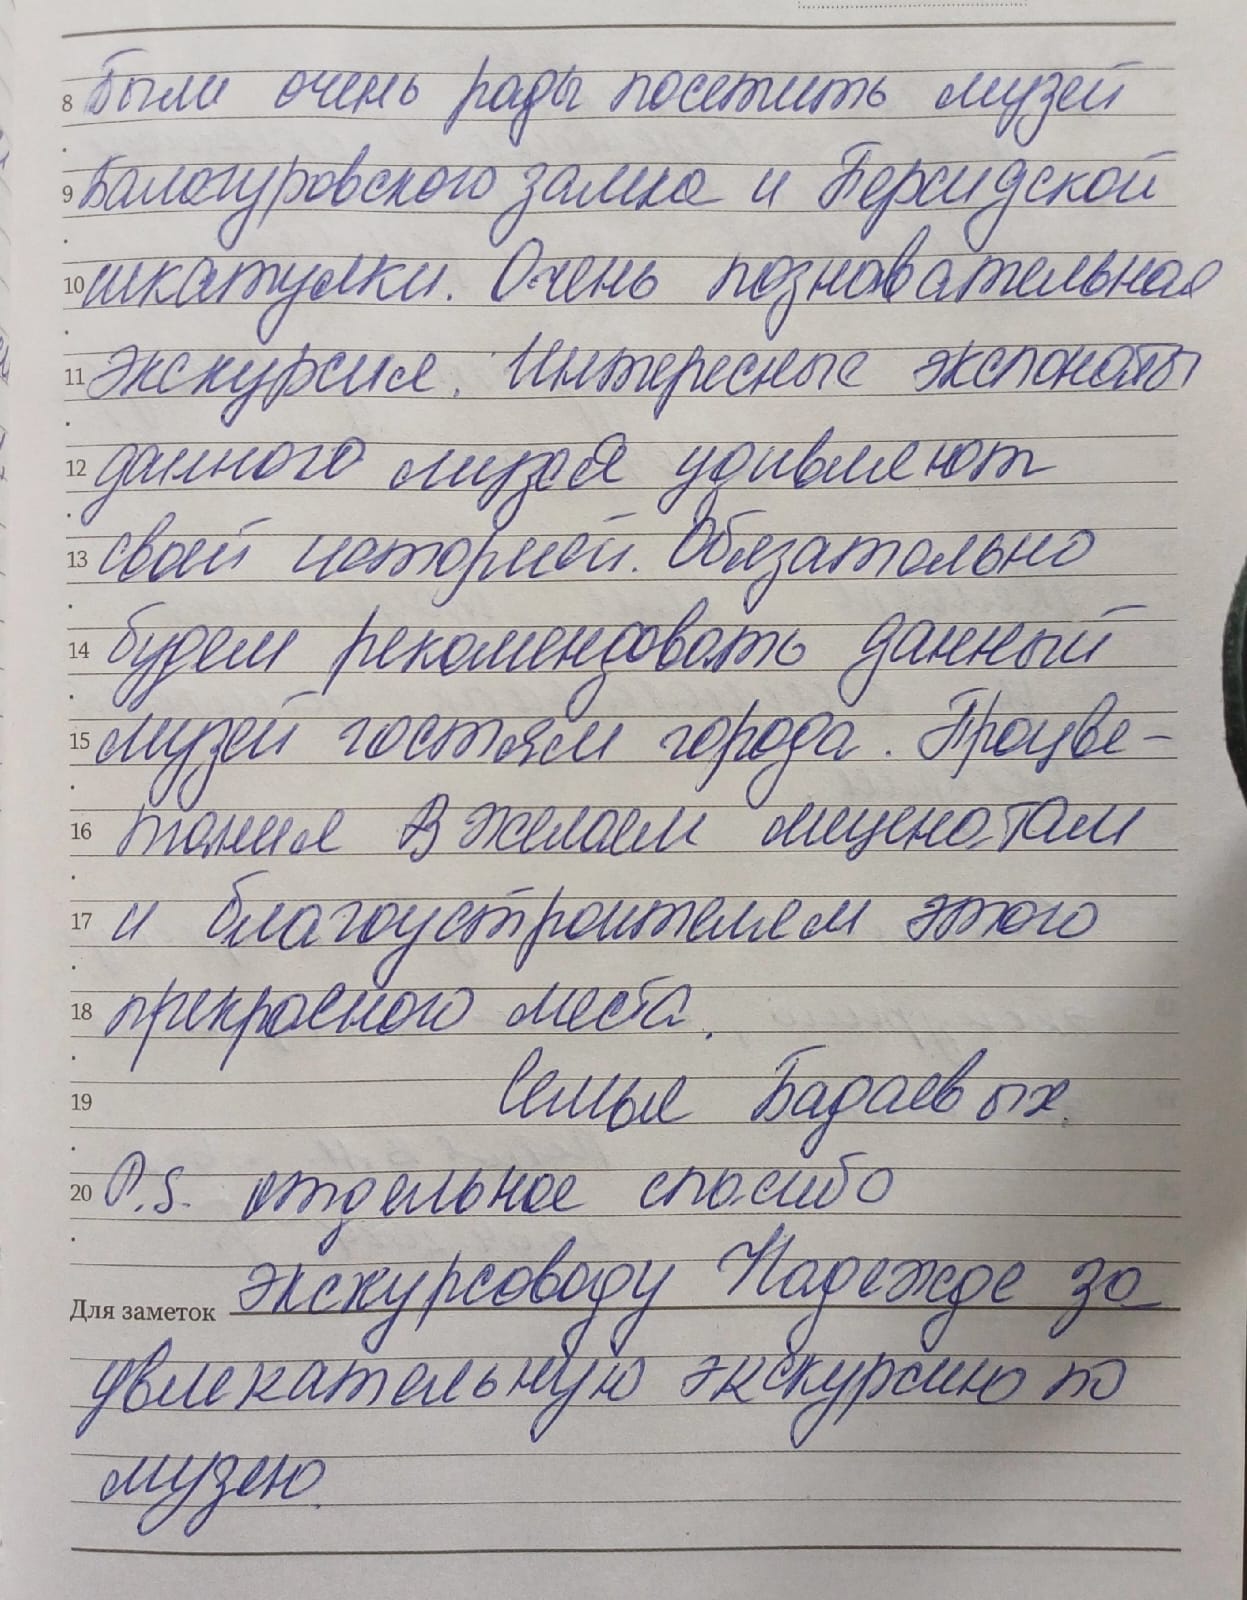 8 Были очень рады посетить музей
9 Балагуровского замка и Персидской
10 шкатулки. Очень познавательная
11 экскурсия. Интересные экспонаты
12 данного музея удивляют
13 своей историей. Обязательно
14 будем рекомендовать данный
15 музей гостям города. Процве-
16 тания желаем меценатам
17 и благоустроителям этого
18 прекрасного места.
19 Семья Бадаевых.
20 P.S. отдельное спасибо
Для заметок экскурсоводу Надежде за
увлекательную экскурсию по
музею.